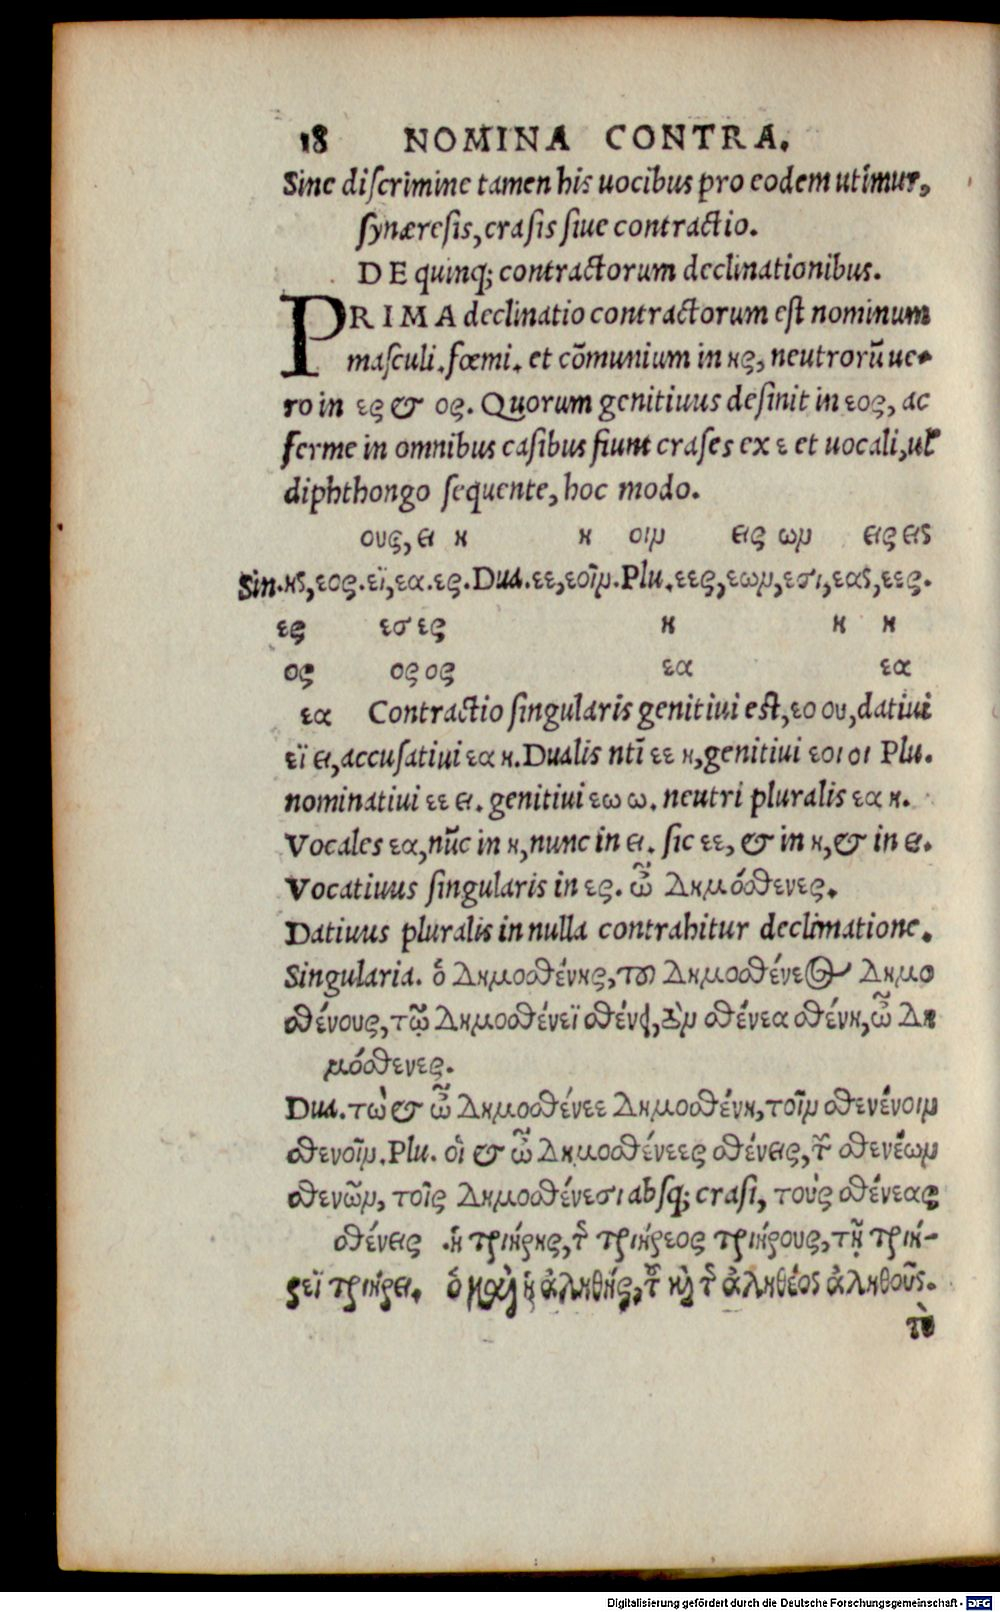 18 NOMINA CONTRA.
Sine discrimine tamen his uocibus pro eodem utimur,
synæresis, crasis siue contractio.
DE quinq; contractorum declinationibus.
PRIMA declinatio contractorum est nominum
masculi. fœmi. et cõmunium in ης, neutrorũ ue-
ro in ες & ος. Quorum genitiuus desinit in εος, ac
ferme in omnibus casibus fiunt crases ex ε et uocali, uel
diphthongo sequente, hoc modo.
ους, ει η η οιν εις ων εις εις
Sin. ης, εος. εϊ, εα. ες. Dua. εε, εοῖν. Plu. εες, εων, εσι, εας, εες.
ες εσ ες η η η
ος ος ος εα εα
εα Contractio singularis genitiui est, εο ου, datiui
εϊ ει, accusatiui εα η. Dualis ntĩ εε η, genitiui εοι οι Plu.
nominatiui εε ει. genitiui εω ω. neutri pluralis εα η.
Vocales εα, nũc in η, nunc in ει. sic εε, & in η, & in ει.
Vocatiuus singularis in ες. ὦ Δημόσθενες.
Datiuus pluralis in nulla contrahitur declinatione.
Singularia. ὁ Δημοσθένης, τοῦ Δημοσθένεος Δημο
σθένους, τῷ Δημοσθένεϊ σθένει, τὸν σθένεα σθένη, ὦ Δη
μόσθενες.
Dua. τὼ & ὦ Δημοσθένεε Δημοσθένη, τοῖν σθενένοιν
σθενοῖν. Plu. οἱ & ὦ Δημοσθένεες σθένεις, τῶν σθενέων
σθενῶν, τοῖς Δημοσθένεσι absq; crasi, τοὺς σθένεας
σθένεις. ἡ τριήρης, τῆς τριήρεος τριήρους, τῇ τριή-
ρεϊ τριήρει. ὁ καὶ ἡ ἀληθής, τοῦ καὶ τῆς ἀληθέος ἀληθοῦς.
τὸ
Digitalisierung gefördert durch die Deutsche Forschungsgemeinschaft - DFG